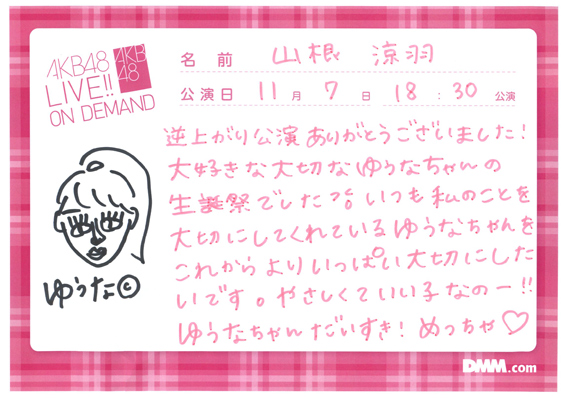 AKB48
LIVE!!
ON DEMAND
AKB
48
名前 山根 涼羽
公演日 11月7日 18:30 公演
逆上がり公演ありがとうございました!
大好きな大切なゆうなちゃんの
生誕祭でした いつも私のことを
大切にしてくれているゆうなちゃんを
これからよりいっぱい大切にした
いです。やさしくていい子なのー!!
ゆうなちゃんだいすき!めっちゃ♡
ゆうな©
DMM.com